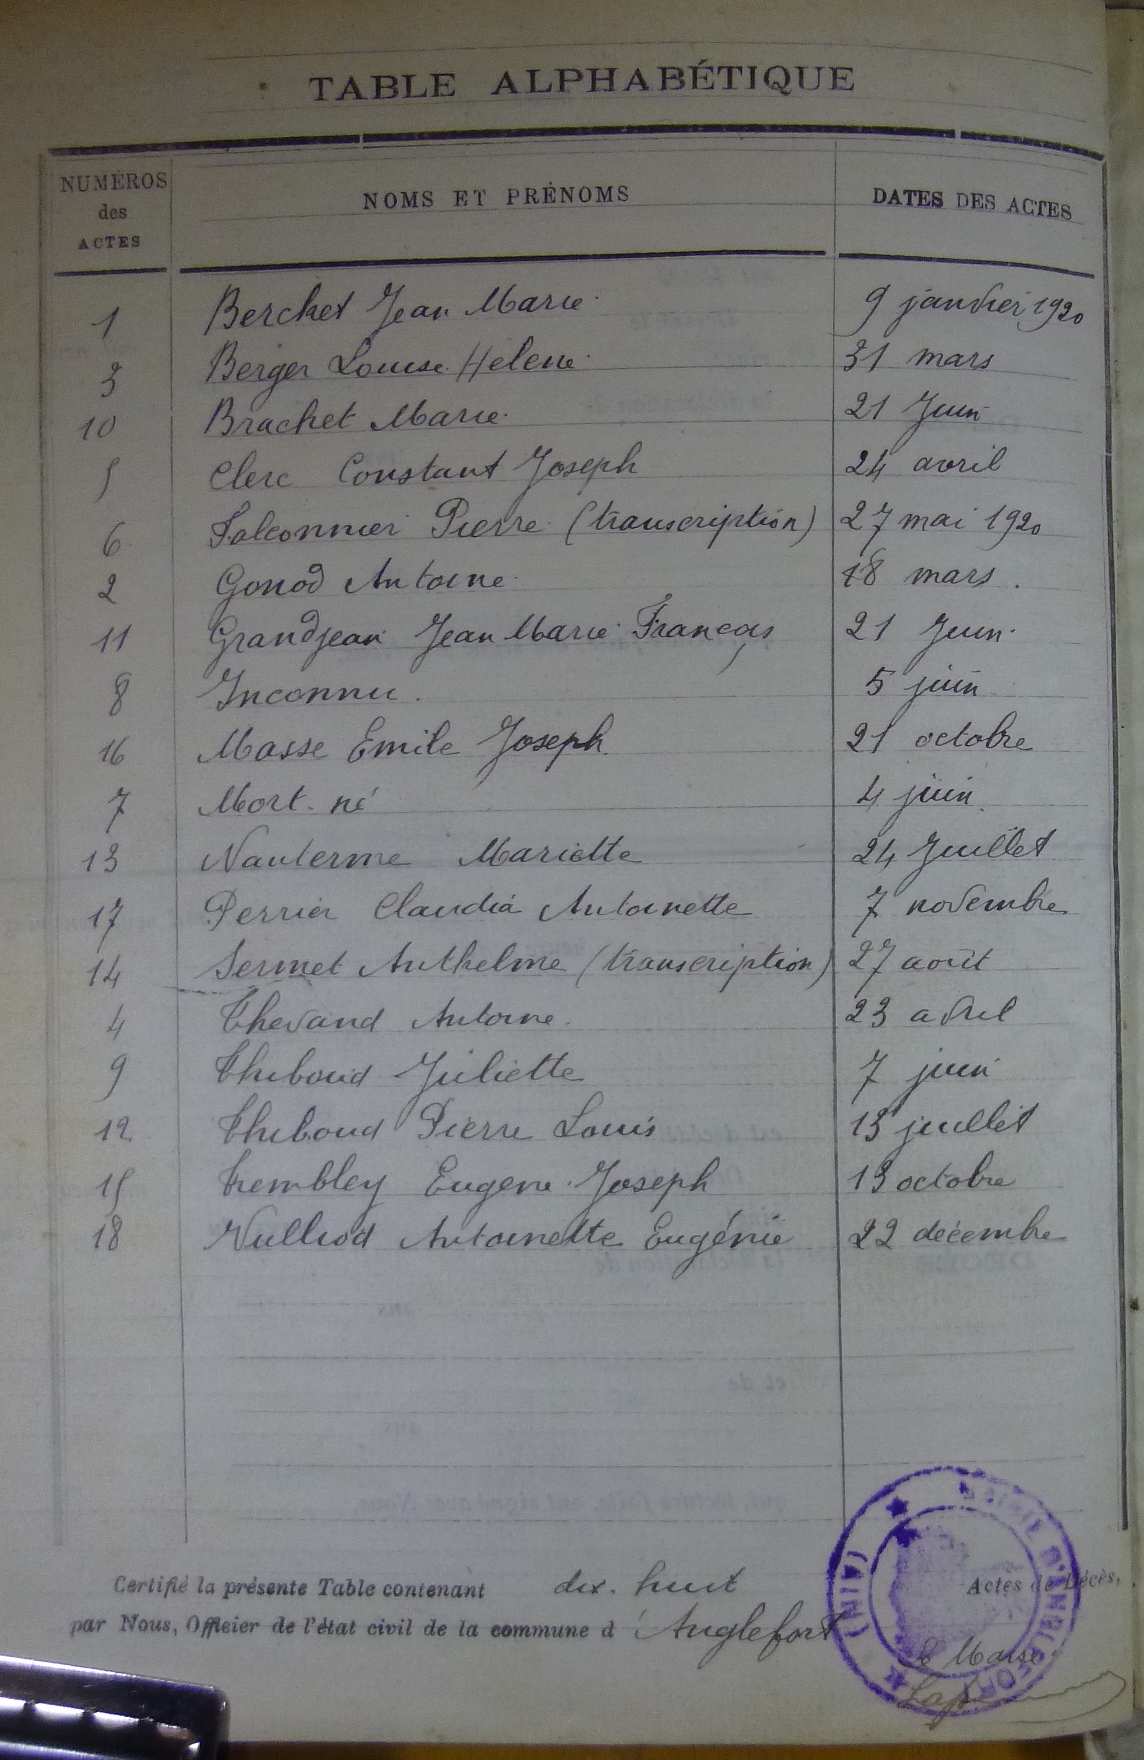 TABLE ALPHABÉTIQUE
NUMÉROS des ACTES NOMS ET PRÉNOMS DATES DES ACTES
1 Berchet Jean Marie 9 janvier 1920
3 Berger Louise Helene 31 mars
10 Brachet Marie 21 Juin
5 Clerc Constant Joseph 24 avril
6 Falconnier Pierre (transcription) 27 mai 1920
2 Gonod Antoine 18 mars
11 Grandjean Jean Marie François 21 Juin
8 Inconnu 5 juin
16 Masse Emile Joseph 21 octobre
7 Mort-né 4 juin
13 Nanterme Mariette 24 Juillet
17 Perrier Claudia Antoinette 7 novembre
14 Sermet Anthelme (transcription) 27 août
4 Thevand Antoine 23 avril
9 Thiboud Juliette 7 juin
12 Thiboud Pierre Louis 13 juillet
15 Trembley Eugene Joseph 13 octobre
18 Vulliod Antoinette Eugénie 22 décembre
Certifié la présente Table contenant dix-huit Actes de Décès,
par Nous, Officier de l'état civil de la commune d'Anglefort
MAIRIE D'ANGLEFORT (AIN)
Le Maire